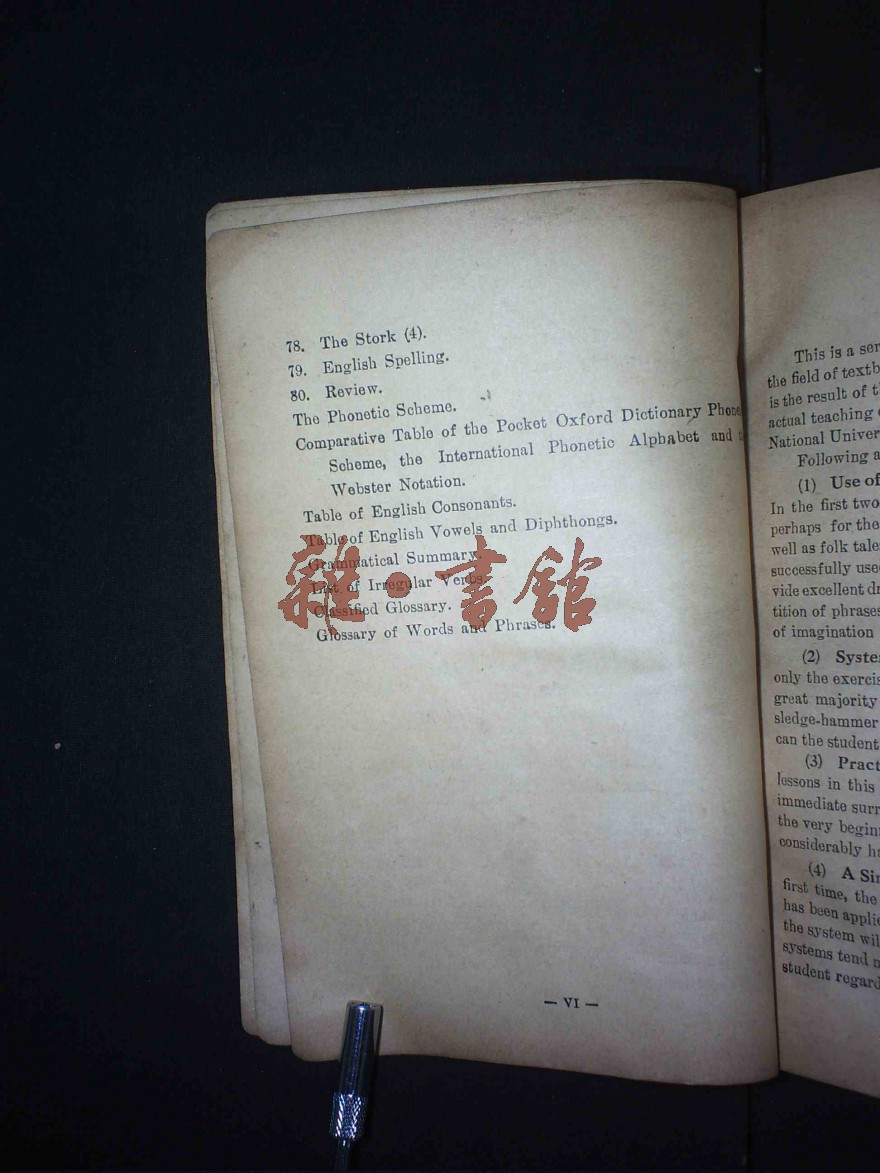 78. The Stork (4).
79. English Spelling.
80. Review.
The Phonetic Scheme.
Comparative Table of the Pocket Oxford Dictionary Phone
Scheme, the International Phonetic Alphabet and
Webster Notation.
Table of English Consonants.
Table of English Vowels and Diphthongs.
Grammatical Summary.
List of Irregular Verbs.
Classified Glossary.
Glossary of Words and Phrases.
雜·書館
— VI —
This is a ser
the field of textb
is the result of t
actual teaching
National Univer
Following a
(1) Use of
In the first two
perhaps for the
well as folk tale
successfully use
vide excellent dr
tition of phrases
of imagination
(2) Syste
only the exercis
great majority
sledge-hammer
can the student
(3) Pract
lessons in this
immediate surr
the very beginn
considerably ha
(4) A Sim
first time, the
has been applie
the system wil
systems tend n
student regard